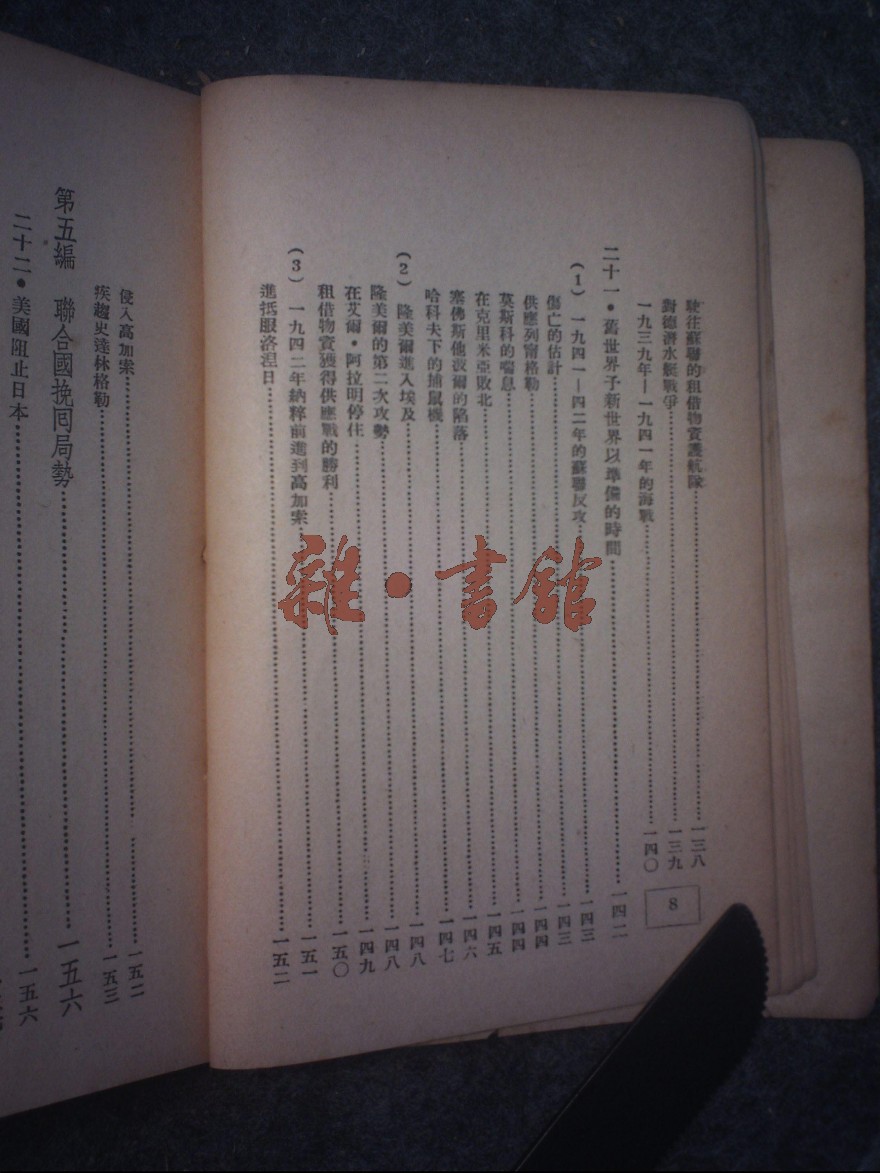 駛往蘇聯的租借物資護航隊……一三八
對德潛水艇戰爭……一三九
一九三九年—一九四一年的海戰……一四〇
二十一●舊世界予新世界以準備的時間……一四二
(1) 一九四一—四二年的蘇聯反攻……一四三
傷亡的估計……一四三
供應列甯格勒……一四四
莫斯科的喘息……一四四
在克里米亞敗北……一四五
塞佛斯他波爾的陷落……一四六
哈科夫下的捕鼠機……一四七
(2) 隆美爾進入埃及……一四八
隆美爾的第二次攻勢……一四八
在艾爾●阿拉明停住……一四九
租借物資獲得供應戰的勝利……一五〇
(3) 一九四二年納粹前進到高加索……一五一
進抵服洛涅日……一五二
8
侵入高加索……一五二
疾趨史達林格勒……一五三
第五編 聯合國挽囘局勢……一五六
二十二●美國阻止日本……一五六
雜●書館